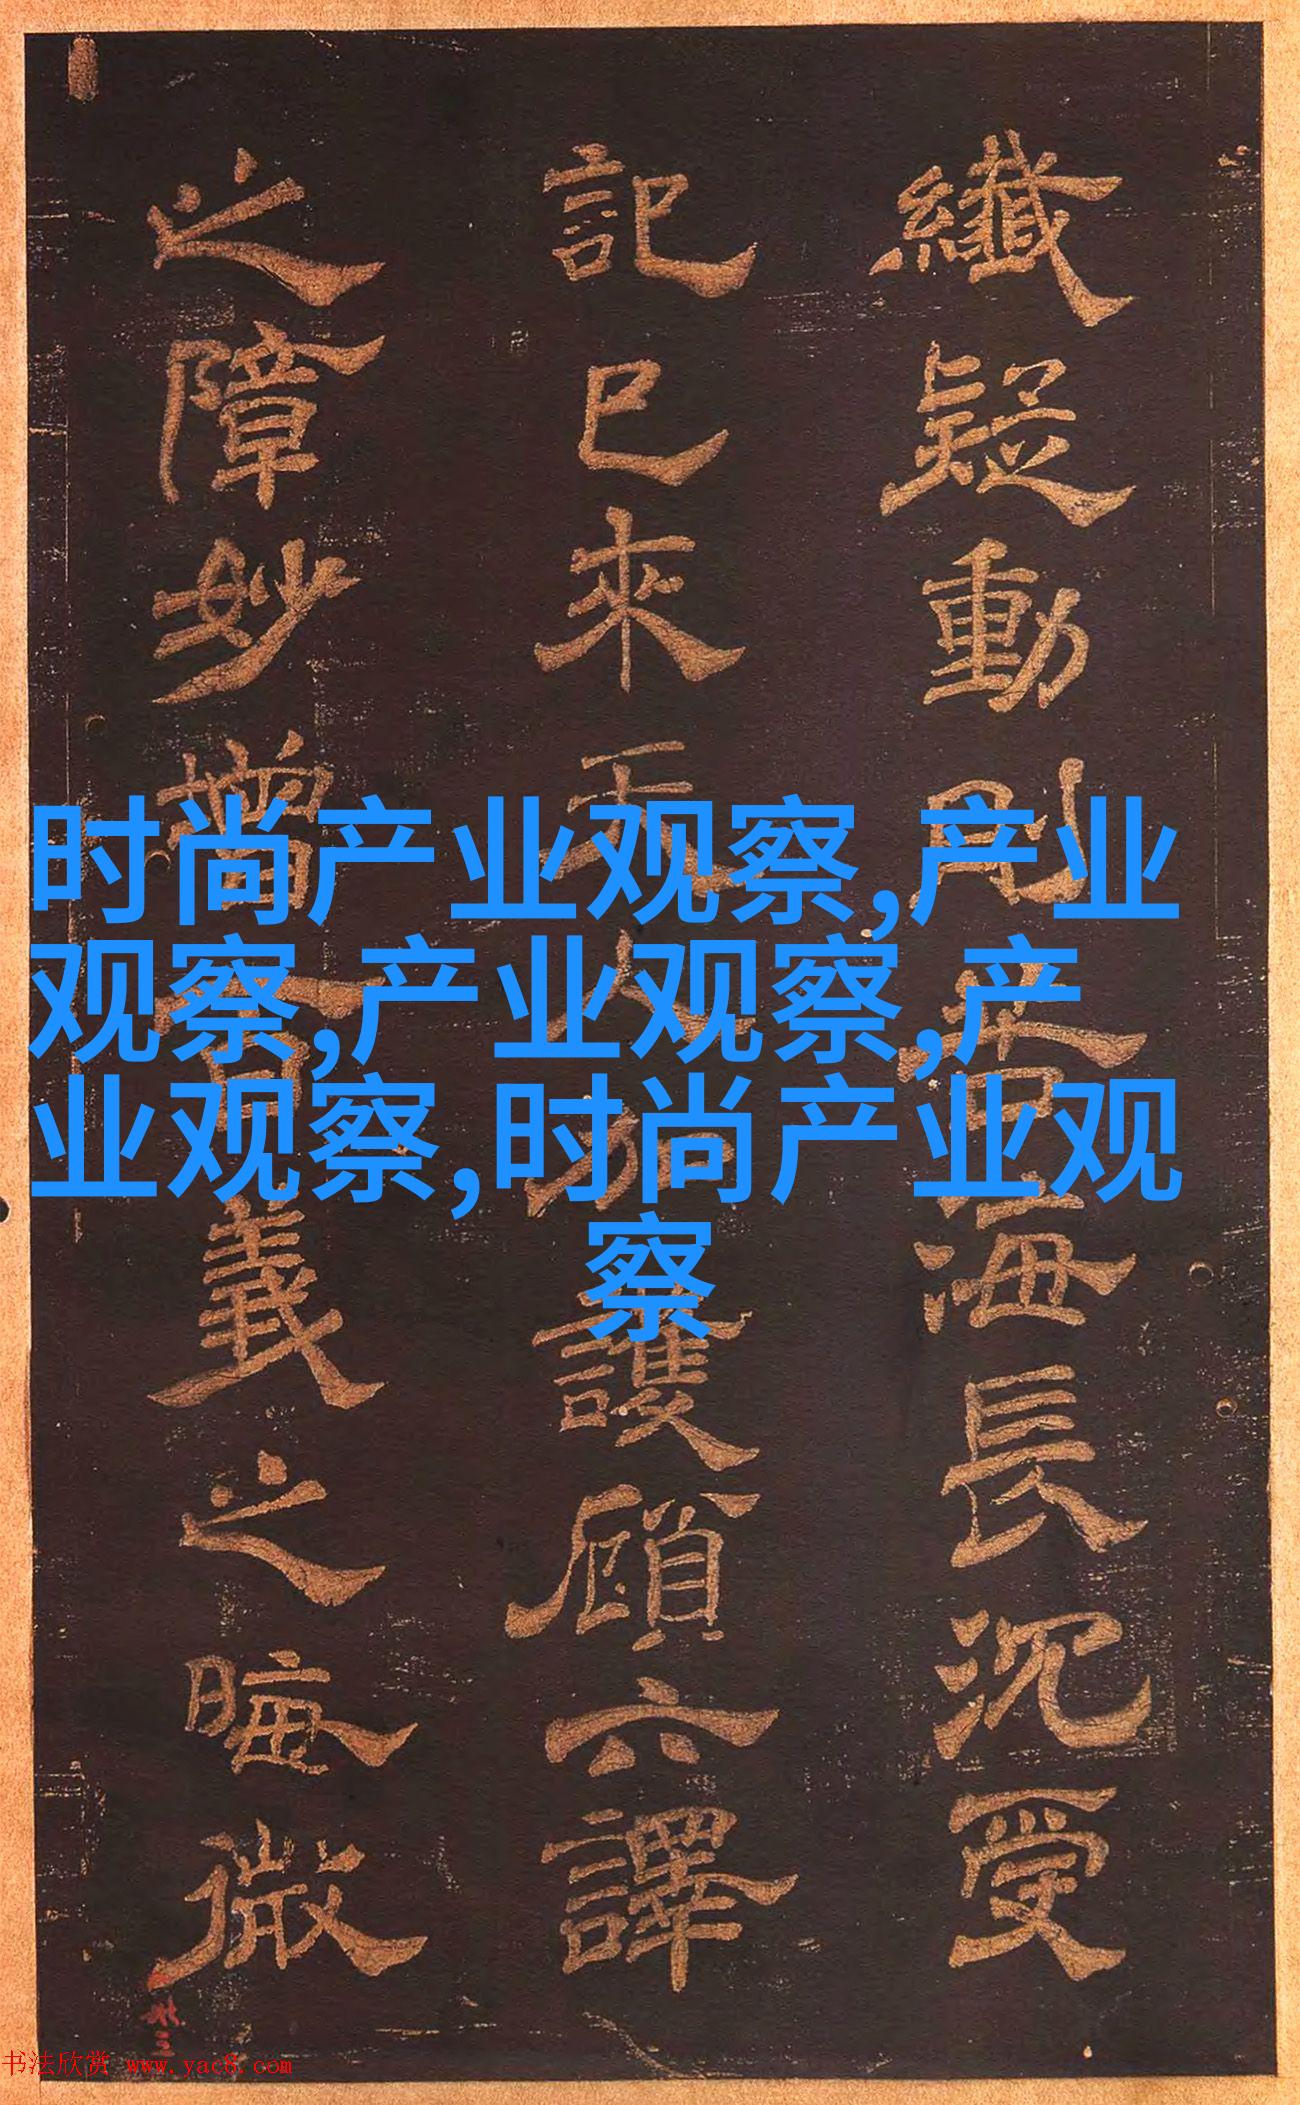 纖疑動則苦海長沉受
記已來天人加護顧六譯
之障妙增百義之晦微
时尚产业观察,产业
观察,产业观察,产
业观察,时尚产业观
察
书法欣赏 www.yac8.com